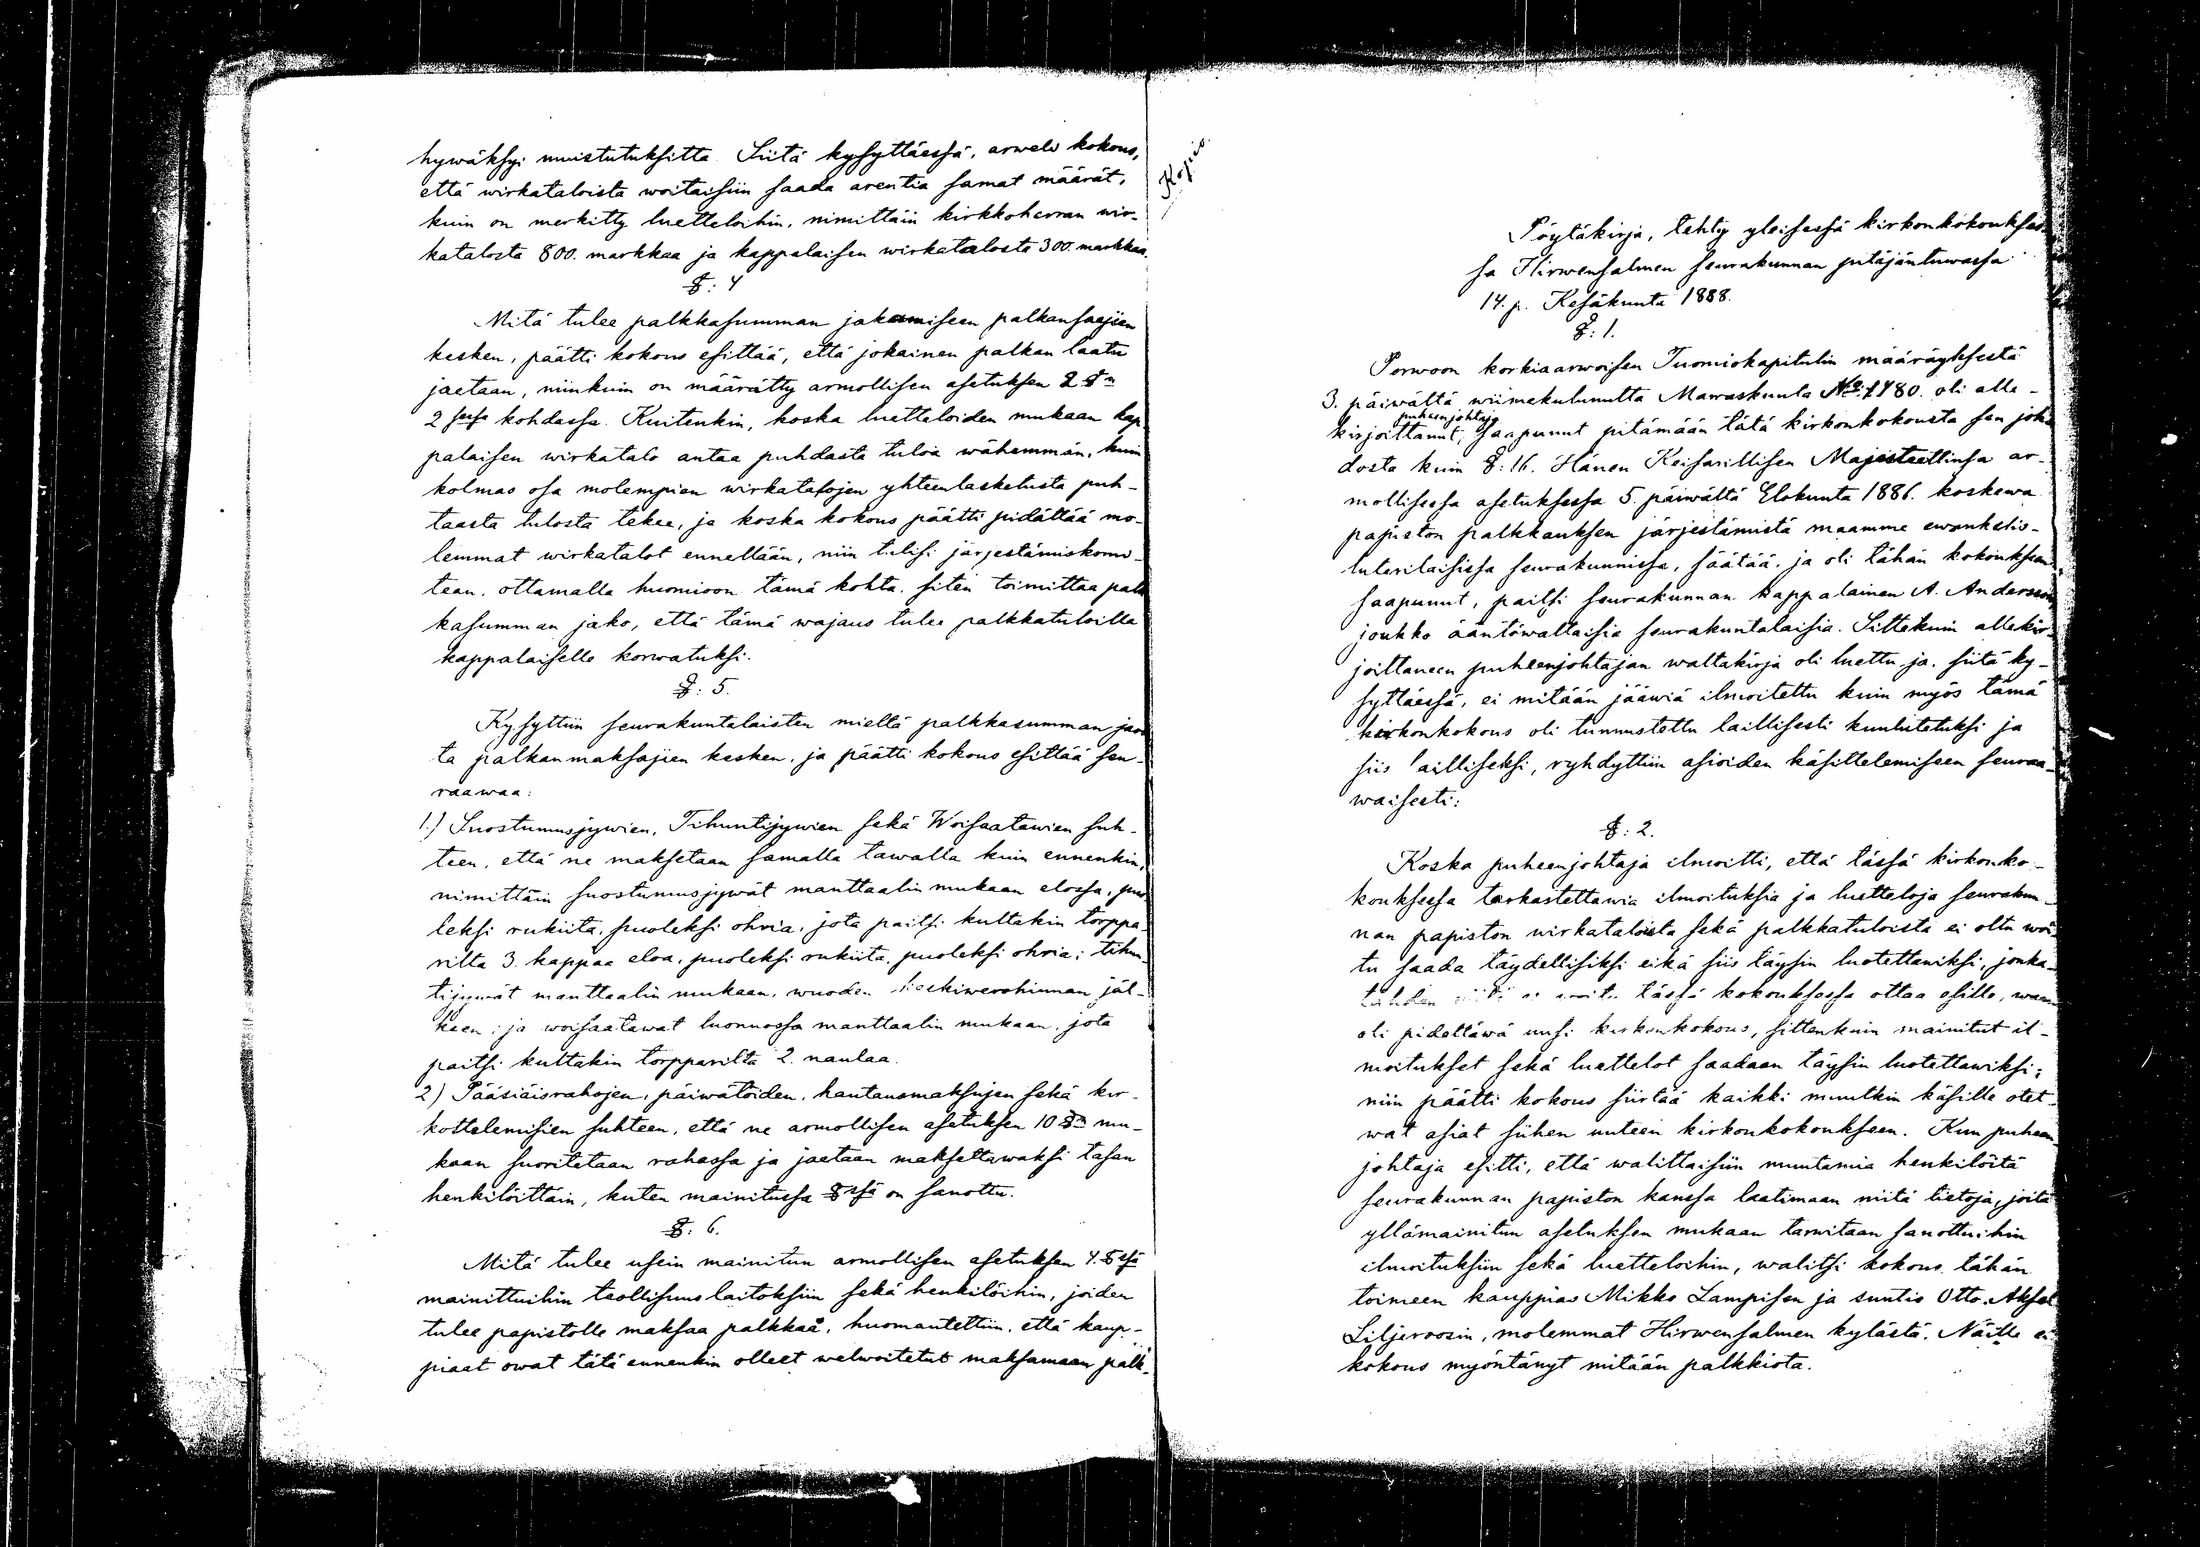 hywäksyi muistutuksitta. Siitä kysyttäessä, arweli kokous,
että wirkataloista woitaisiin saada arentia samat määrät,
kuin on merkitty luetteloihin, nimittäin kirkkoherran wir-
katalosta 800. markkaa ja kappalaisen wirkatalosta 300. markkaa.
§: 4
Mitä tulee palkkasumman jakamiseen palkansaajien
kesken, päätti kokous esittää, että jokainen palkan laatu
jaetaan, niinkuin on määrätty armollisen asetuksen 2 §:n
2 kohdassa. Kuitenkin, koska luetteloiden mukaan kap
palaisen wirkatalo antaa puhdasta tuloa wähemmän, kuin
kolmas osa molempien wirkatalojen yhteenlasketusta puh-
taasta tulosta tekee, ja koska kokous päätti pidättää mo-
lemmat wirkatalot ennellään, niin tulisi järjestämiskomi-
tean, ottamalla huomioon tämä kohta, siten toimittaa palk
kasumman jako, että tämä wajaus tulee palkkatuloilla
kappalaiselle korwatuksi.
§: 5.
Kysyttiin seurakuntalaisten mieltä palkkasumman jaos
ta palkanmaksajien kesken, ja päätti kokous esittää seu-
raawaa:
1.) Suostumusjywien, Tihuntijywien sekä Woisaatawien suh-
teen, että ne maksetaan samalla tawalla kuin ennenkin,
nimittäin suostumusjywät manttaalin mukaan elossa, puo
leksi rukiita, puoleksi ohria, jota paitsi kultakin torppa-
rilta 3. kappaa eloa, puoleksi rukiita, puoleksi ohria; tihun-
tijywät manttaalin mukaan, wuoden keskiwerohinnan jäl-
keen; ja woisaatawat luonnossa manttaalin mukaan, jota
paitsi kultakin torpparilta 2. naulaa.
2) Pääsiäisrahojen, päiwätöiden, hautausmaksujen sekä kir-
kottelemisien suhteen, että ne armollisen asetuksen 10 §:n mu-
kaan suoritetaan rahassa ja jaetaan maksettawaksi tasan
henkilöittäin, kuten mainitussa §:ssä on sanottu.
§: 6.
Mitä tulee usein mainitun armollisen asetuksen 4. §:ssä
mainittuihin teollisuuslaitoksiin sekä henkilöihin, joiden
tulee papistolle maksaa palkkaa, huomautettiin, että kaup-
piaat owat tätä ennenkin olleet welwoitetut maksamaan palk-
Kopio
Pöytäkirja, tehty yleisessä kirkonkokoukses-
sa Hirwensalmen seurakunnan pitäjäntuwassa
14. p. Kesäkuuta 1888.
§: 1.
Porwoon korkiaarwoisen Tuomiokapitulin määräyksestä
3. päiwältä wiimekulunutta Marraskuuta No: 1780. oli alle-
puheenjohtaja
kirjoittanut, saapunut pitämään tätä kirkonkokousta sen joh
dosta kuin §: 16. Hänen Keisarillisen Majesteettinsa ar-
mollisessa asetuksessa 5. päiwältä Elokuuta 1886. koskewa
papiston palkkauksen järjestämistä maamme ewankelis-
luterilaisissa seurakunnissa, säätää, ja oli tähän kokoukseen
saapunut, paitsi seurakunnan kappalainen A. Andersin,
joukko ääntöwaltaisia seurakuntalaisia. Sittekuin allekir-
joittaneen puheenjohtajan waltakirja oli luettu ja, siitä ky-
syttäessä, ei mitään jääwiä ilmoitettu kuin myös tämä
kirkonkokous oli tunnustettu laillisesti kuulutetuksi ja
siis lailliseksi, ryhdyttiin asioiden käsittelemiseen seuraa-
waisesti:
§: 2.
Koska puheenjohtaja ilmoitti, että tässä kirkonko-
kouksessa tarkastettawia ilmoituksia ja luetteloja seurakun-
nan papiston wirkataloista sekä palkkatuloista ei oltu woi-
tu saada täydellisiksi eikä siis täysin luotettawiksi, jonka-
tähden niitä ei woitu tässä kokouksessa ottaa esille, waan
oli pidettäwä uusi kirkonkokous, sittenkuin mainitut il-
moitukset sekä luettelot saadaan täysin luotettawiksi;
niin päätti kokous siirtää kaikki muutkin käsille otet-
wat asiat siihen uuteen kirkonkokoukseen. Kun puheen
johtaja esitti, että walittaisiin muutamia henkilöitä
seurakunnan papiston kanssa laatimaan niitä tietoja, joita
yllämainitun asetuksen mukaan tarwitaan sanottuihin
ilmoituksiin sekä luetteloihin, walitsi kokous tähän
toimeen kauppias Mikko Lampisen ja suntio Otto Aksel
Liljeroosin, molemmat Hirwensalmen kylästä. Näille ei
kokous myöntänyt mitään palkkiota.